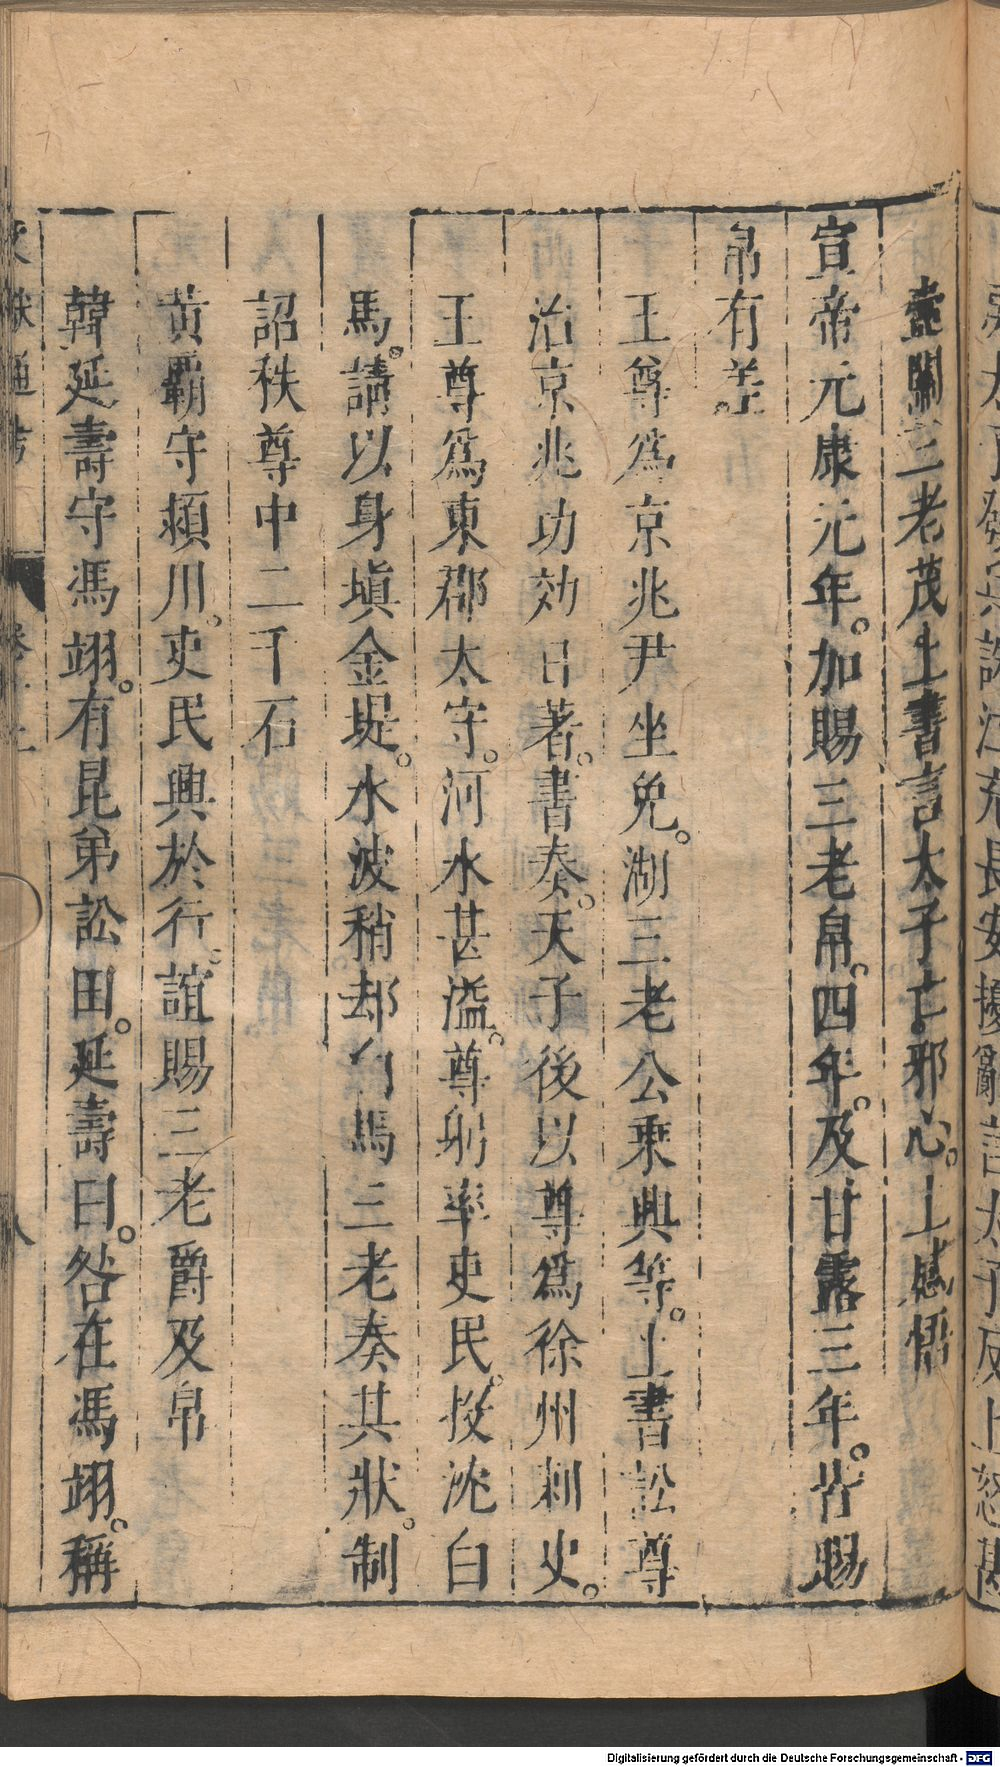 戾太子發兵誅江充長安擾亂言太子反上怒甚
壺關三老茂上書言太子亡邪心。上感悟
宣帝元康元年。加賜三老帛。四年。及甘露三年。皆賜
帛有差。
王尊爲京兆尹坐免。湖三老公乘興等。上書訟尊
治京兆功効日著。書奏。天子後以尊爲徐州刺史。
王尊爲東郡太守。河水甚溢。尊躬率吏民。投沈白
馬。請以身塡金堤。水波稍却 馬三老奏其狀。制
詔秩尊中二千石
黄霸守頴川。吏民興於行。誼賜三老爵及帛
韓延壽守馮翊。有昆弟訟田。延壽曰。咎在馮翊。稱
文獻通考 卷十二 八
Digitalisierung gefördert durch die Deutsche Forschungsgemeinschaft - DFG